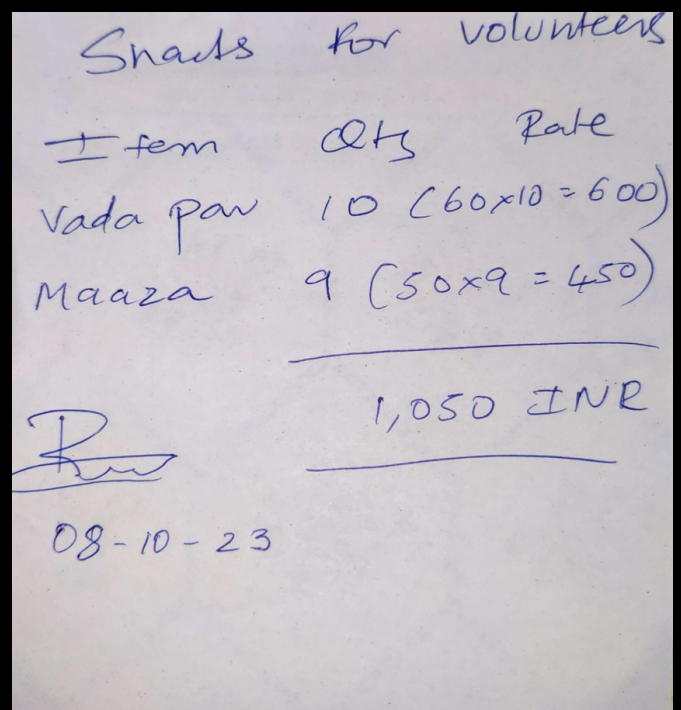 Snacks for volunteers
Item Qty Rate
Vada pav 10 (60x10 = 600)
Maaza 9 (50x9 = 450)
1,050 INR
08-10-23